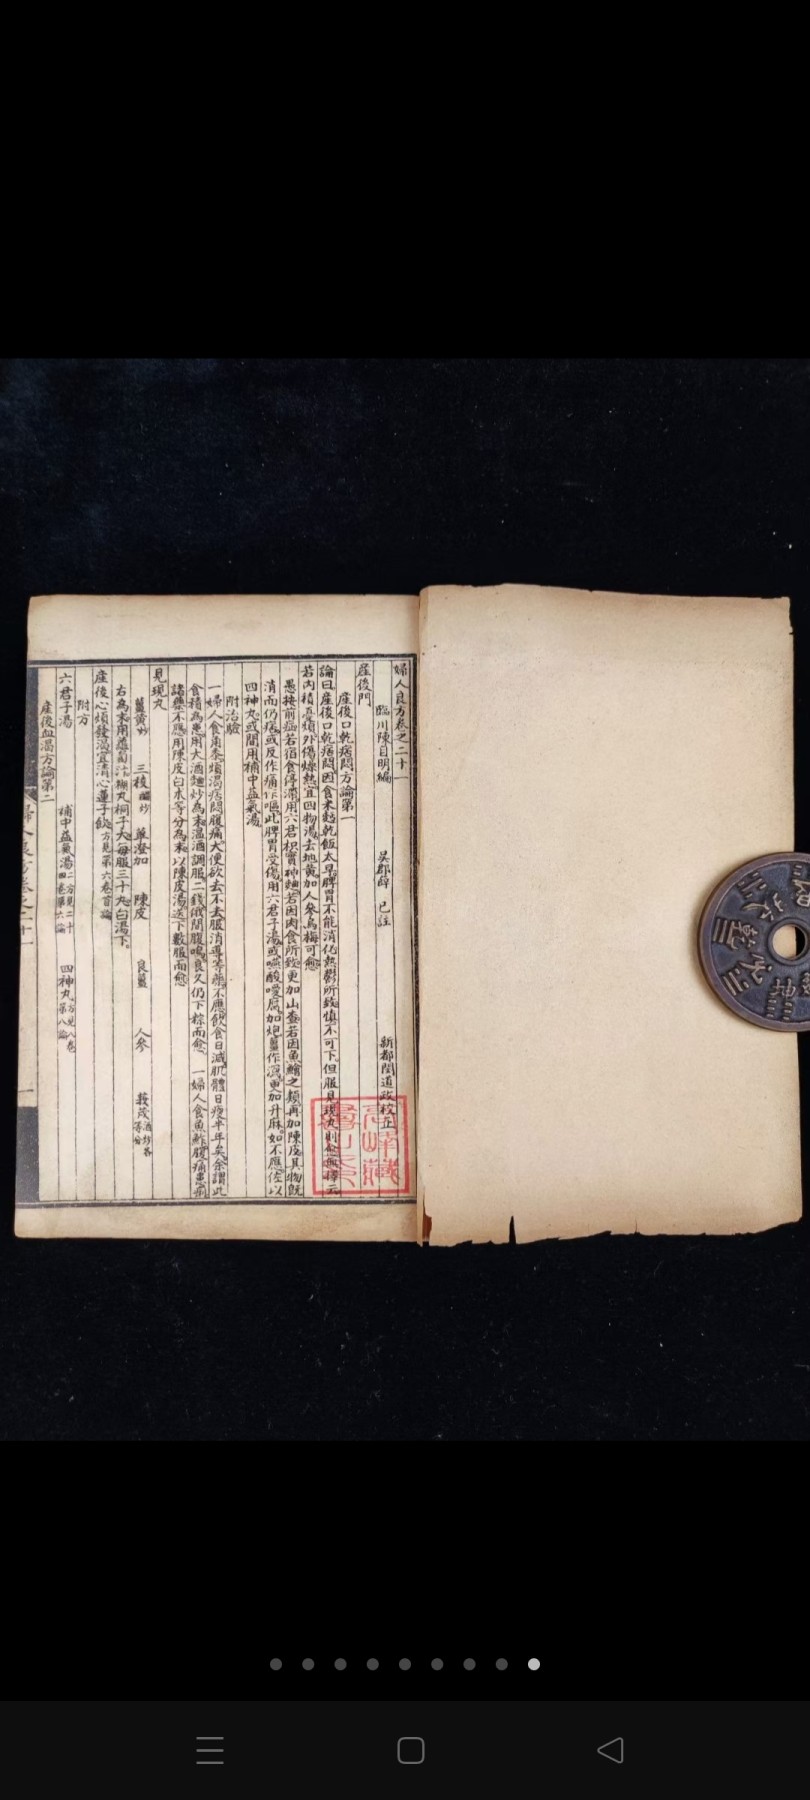 婦人良方卷之二十一
臨川陳自明編 吳郡薛 己註 新都閔道政校正
産後門
産後口乾痞悶方論第一
論曰産後口乾痞悶因食米麪乾飯太早脾胃不能消化熱鬱所致慎不可下但服見現丸則愈無擇云
若內積憂煩外傷燥熱宜四物湯去地黃加人參烏梅可愈
愚按前症若宿食停滯用六君枳實神麯若因肉食所致更加山查若因魚鱠之類再加陳皮其物既
消而仍痞或反作痛作嘔此脾胃受傷用六君子湯或嚥酸噯腐加炮薑作瀉更加升麻如不應佐以
四神丸或間用補中益氣湯
附治驗
一婦人食角黍煩渴痞悶腹痛大便欲去不去服消導等藥不應飲食日減肌體日瘦半年矣余謂此
食積為患用大酒麯炒為末溫酒調服二錢俄間腹鳴良久仍下粽而愈 一婦人食魚鮓腹痛患痢
諸藥不應用陳皮白朮等分為末以陳皮湯送下數服而愈
見現丸
薑黃炒 三稜醋炒 蓽澄茄 陳皮 良薑 人參 莪茂酒炒各等分
右為末用蘿蔔汁糊丸桐子大每服三十丸白湯下
産後心煩發渴宜清心蓮子飲方見第六卷首論
附方
六君子湯 補中益氣湯二方見二十四卷第六論 四神丸方見八卷第八論
産後血渴方論第二
婦人良方卷之二十一
一
乾
坤